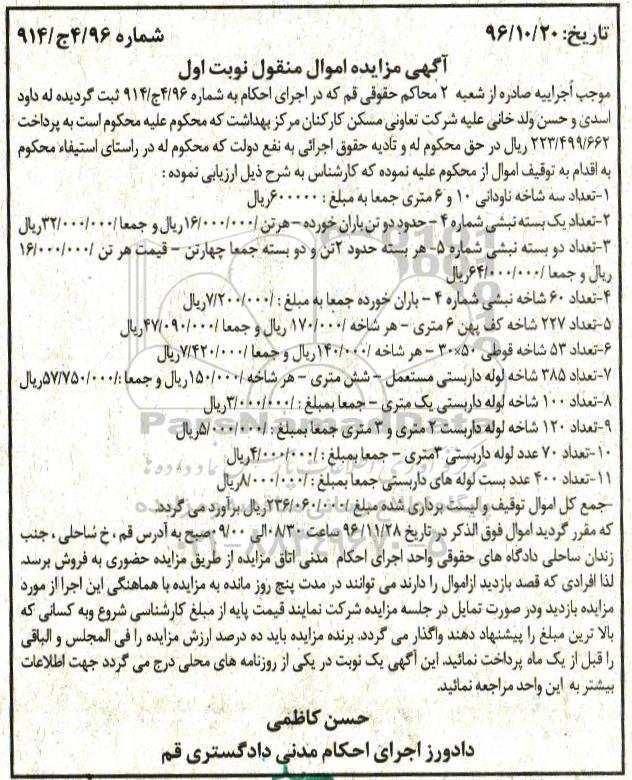 تاریخ: ۹۶/۱۰/۲۰
شماره ۴/۹۶ج/۹۱۴
آگهی مزایده اموال منقول نوبت اول
موجب أجراییه صادره از شعبه ۲ محاکم حقوقی قم که در اجرای احکام به شماره ۴/۹۶ج/۹۱۴ ثبت گردیده له داود
اسدی و حسن ولد خانی علیه شرکت تعاونی مسکن کارکنان مرکز بهداشت که محکوم علیه محکوم است به پرداخت
۲۲۳/۴۹۹/۶۶۲ ریال در حق محکوم له و تادیه حقوق اجرائی به نفع دولت که محکوم له در راستای استیفاء محکوم
به اقدام به توقیف اموال از محکوم علیه نموده که کارشناس به شرح ذیل ارزیابی نموده :
۱-تعداد سه شاخه ناودانی ۱۰ و ۶ متری جمعا به مبلغ : ۶۰۰۰۰۰۰ریال
۲-تعداد یک بسته نبشی شماره ۴ - حدود دو تن باران خورده - هرتن /۱۶/۰۰۰/۰۰۰ریال و جمعا /۳۲/۰۰۰/۰۰۰ریال
۳-تعداد دو بسته نبشی شماره ۵- هر بسته حدود ۲تن و دو بسته جمعا چهارتن - قیمت هر تن /۱۶/۰۰۰/۰۰۰
ریال و جمعا /۶۴/۰۰۰/۰۰۰ریال
۴-تعداد ۶۰ شاخه نبشی شماره ۴ - باران خورده جمعا به مبلغ : /۷/۲۰۰/۰۰۰ریال
۵-تعداد ۲۲۷ شاخه کف پهن ۶ متری - هر شاخه /۱۷۰/۰۰۰ ریال و جمعا /۴۷/۰۹۰/۰۰۰ریال
۶-تعداد ۵۳ شاخه قوطی ۵۰×۳۰ - هر شاخه /۱۴۰/۰۰۰ریال و جمعا /۷/۴۲۰/۰۰۰ریال
۷-تعداد ۳۸۵ شاخه لوله داربستی مستعمل - شش متری - هر شاخه /۱۵۰/۰۰۰ریال و جمعا :/۵۷/۷۵۰/۰۰۰ریال
۸-تعداد ۱۰۰ شاخه لوله داربستی یک متری - جمعا بمبلغ : /۳/۰۰۰/۰۰۰ریال
۹-تعداد ۱۲۰ شاخه لوله داربست ۲ متری و ۱ متری جمعا بمبلغ : /۵/۰۰۰/۰۰۰ریال
۱۰-تعداد ۷۰ عدد لوله داربستی ۳متری - جمعا بمبلغ : /۴/۰۰۰/۰۰۰ریال
۱۱-تعداد ۴۰۰ عدد بست لوله های داربستی جمعا بمبلغ : /۸/۰۰۰/۰۰۰ریال
-جمع کل اموال توقیف و لیست برداری شده مبلغ /۲۳۶/۰۶۰/۰۰۰ریال برآورد می گردد.
که مقرر گردید اموال فوق الذکر در تاریخ ۹۶/۱۱/۲۸ ساعت ۰۸/۳۰الی ۰۹/۰۰ صبح به آدرس قم ، خ ساحلی ، جنب
زندان ساحلی دادگاه های حقوقی واحد اجرای احکام مدنی اتاق مزایده از طریق مزایده حضوری به فروش برسد.
لذا افرادی که قصد بازدید ازاموال را دارند می توانند در مدت پنج روز مانده به مزایده با هماهنگی این اجرا از مورد
مزایده بازدید ودر صورت تمایل در جلسه مزایده شرکت نمایند قیمت پایه از مبلغ کارشناسی شروع وبه کسانی که
بالا ترین مبلغ را پیشنهاد دهند واگذار می گردد. برنده مزایده باید ده درصد ارزش مزایده را فی المجلس و الباقی
را قبل از یک ماه پرداخت نمائید. این آگهی یک نوبت در یکی از روزنامه های محلی درج می گردد جهت اطلاعات
بیشتر به این واحد مراجعه نمائید.
حسن کاظمی
دادورز اجرای احکام مدنی دادگستری قم
ParsNamadData